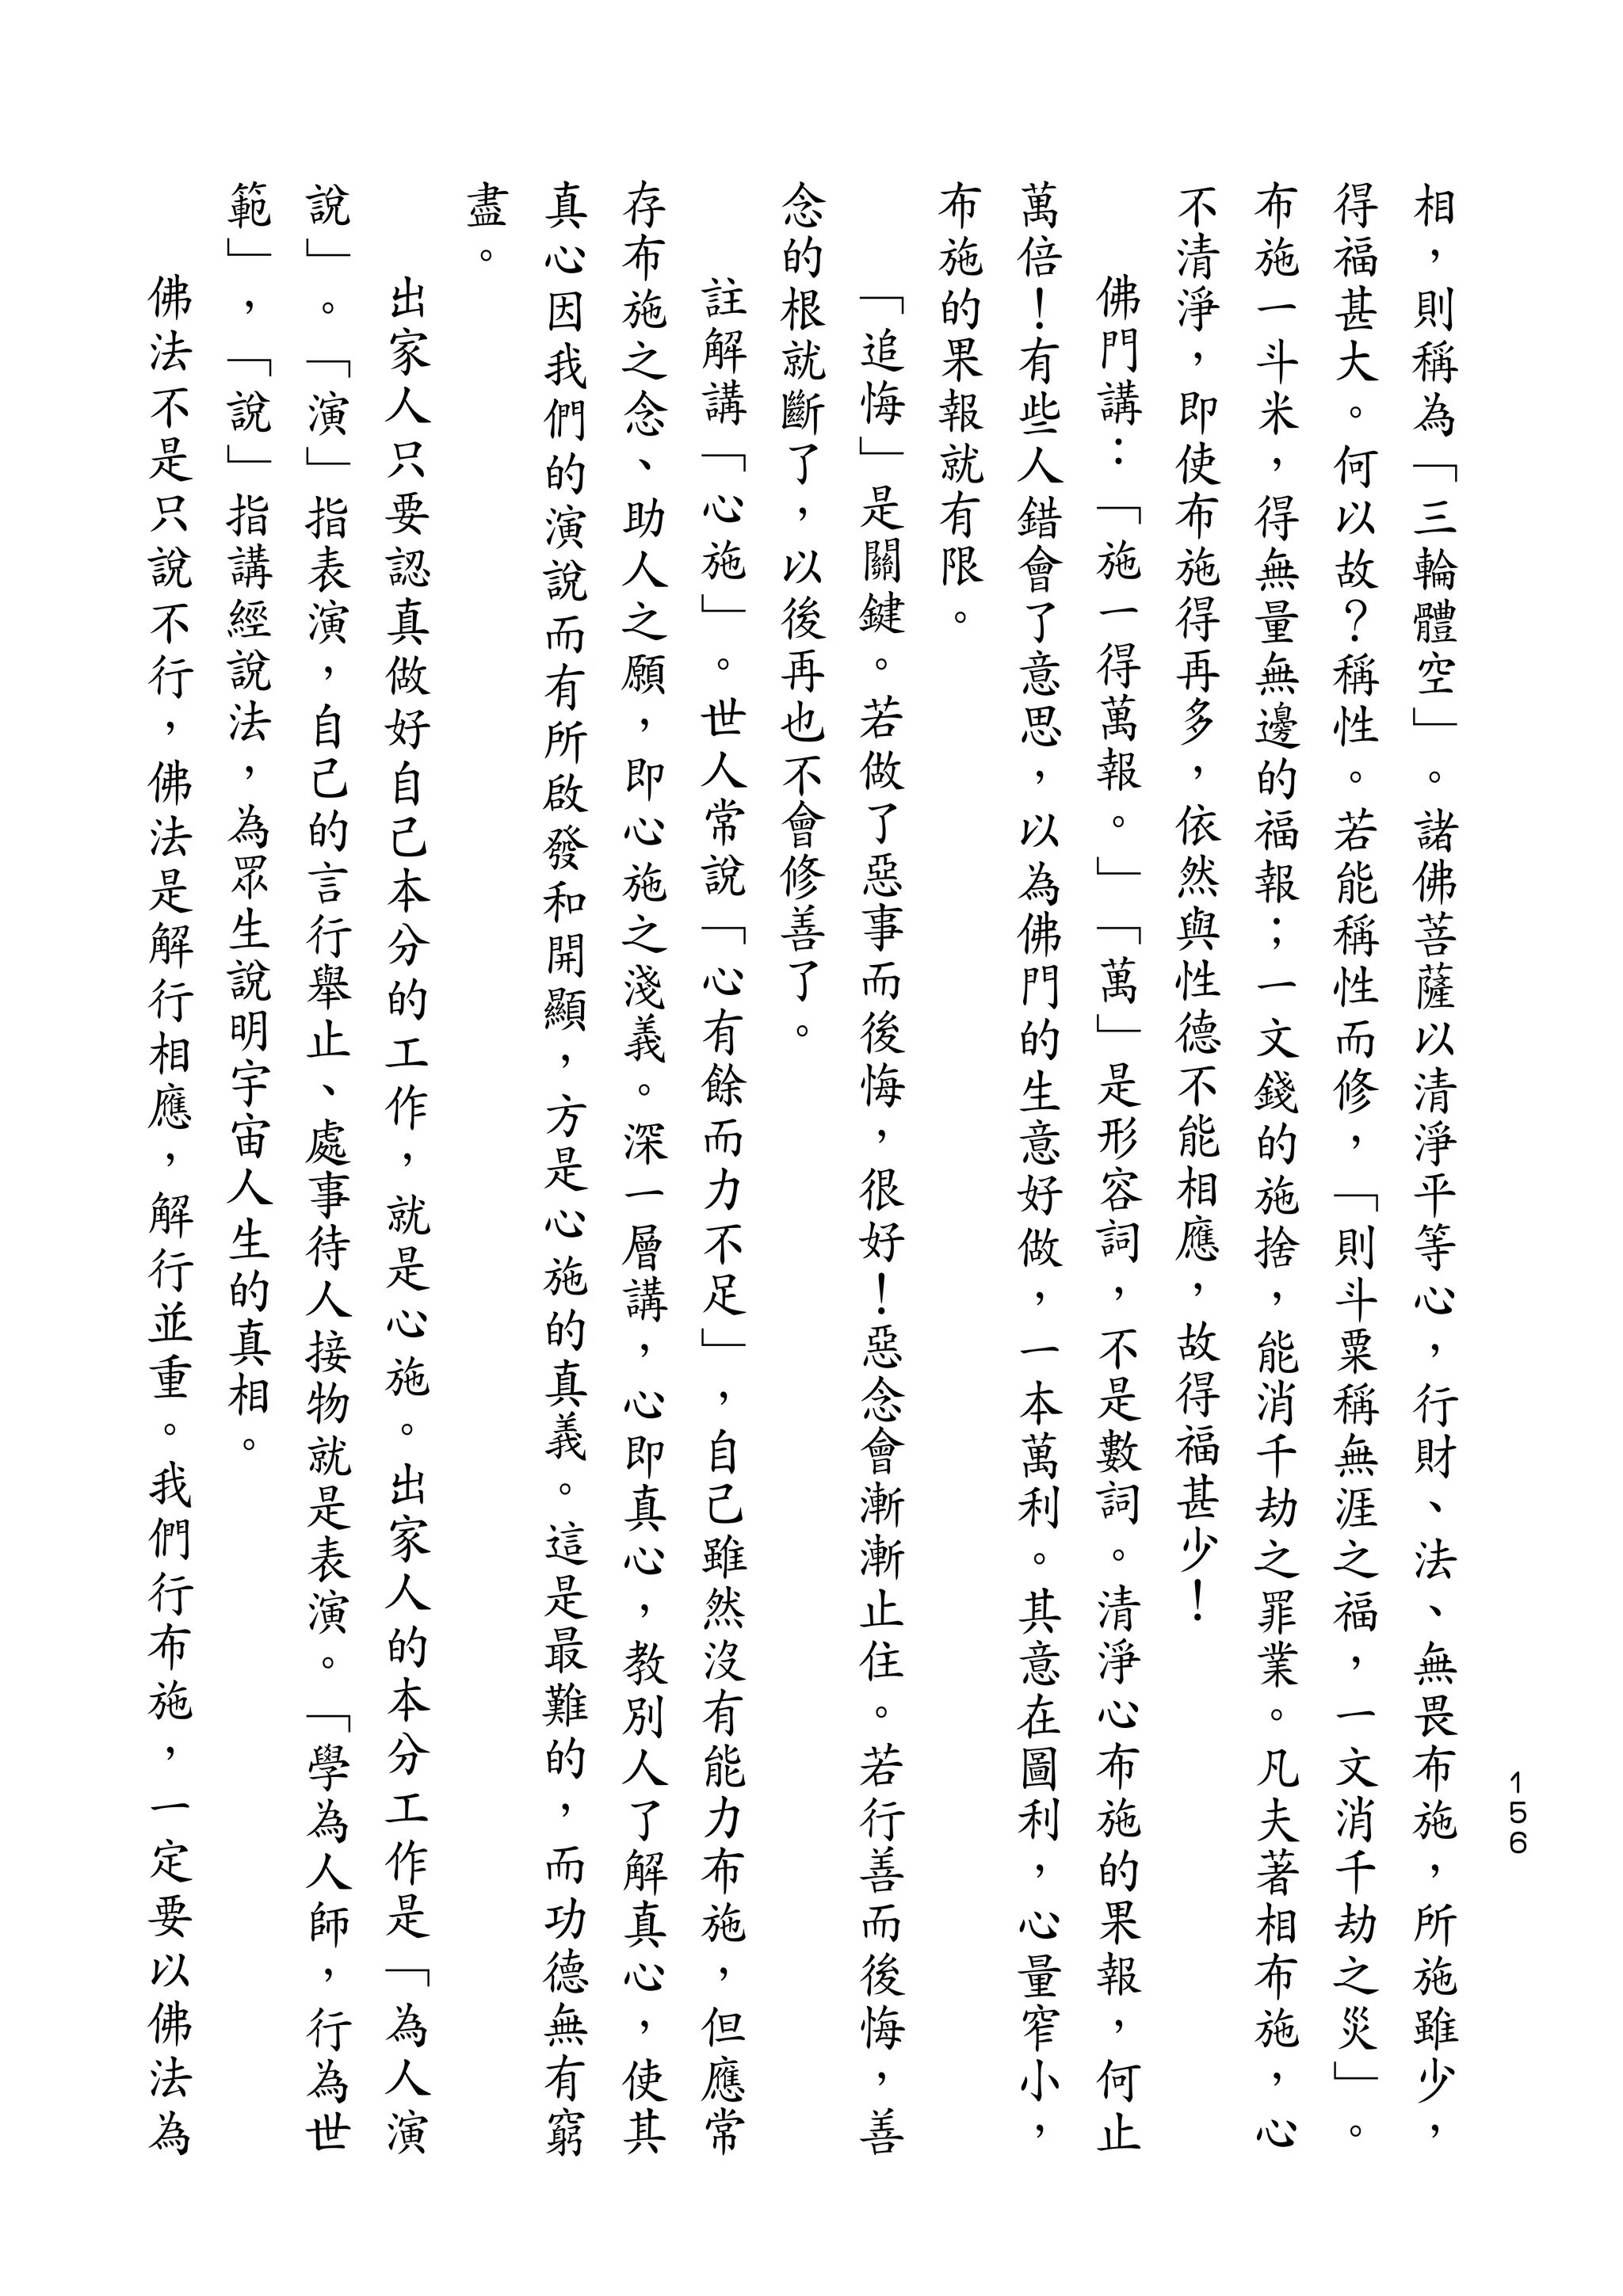 156
相，則稱為「三輪體空」。諸佛菩薩以清淨平等心，行財、法、無畏布施，所施雖少，
得福甚大。何以故？稱性。若能稱性而修，「則斗粟稱無涯之福，一文消千劫之災」。
布施一斗米，得無量無邊的福報；一文錢的施捨，能消千劫之罪業。凡夫著相布施，心
不清淨，即使布施得再多，依然與性德不能相應，故得福甚少！
佛門講：「施一得萬報。」「萬」是形容詞，不是數詞。清淨心布施的果報，何止
萬倍！有些人錯會了意思，以為佛門的生意好做，一本萬利。其意在圖利，心量窄小，
布施的果報就有限。
「追悔」是關鍵。若做了惡事而後悔，很好！惡念會漸漸止住。若行善而後悔，善
念的根就斷了，以後再也不會修善了。
註解講「心施」。世人常說「心有餘而力不足」，自己雖然沒有能力布施，但應常
存布施之念、助人之願，即心施之淺義。深一層講，心即真心，教別人了解真心，使其
真心因我們的演說而有所啟發和開顯，方是心施的真義。這是最難的，而功德無有窮
盡。
出家人只要認真做好自己本分的工作，就是心施。出家人的本分工作是「為人演
說」。「演」指表演，自己的言行舉止、處事待人接物就是表演。「學為人師，行為世
範」，「說」指講經說法，為眾生說明宇宙人生的真相。
佛法不是只說不行，佛法是解行相應，解行並重。我們行布施，一定要以佛法為